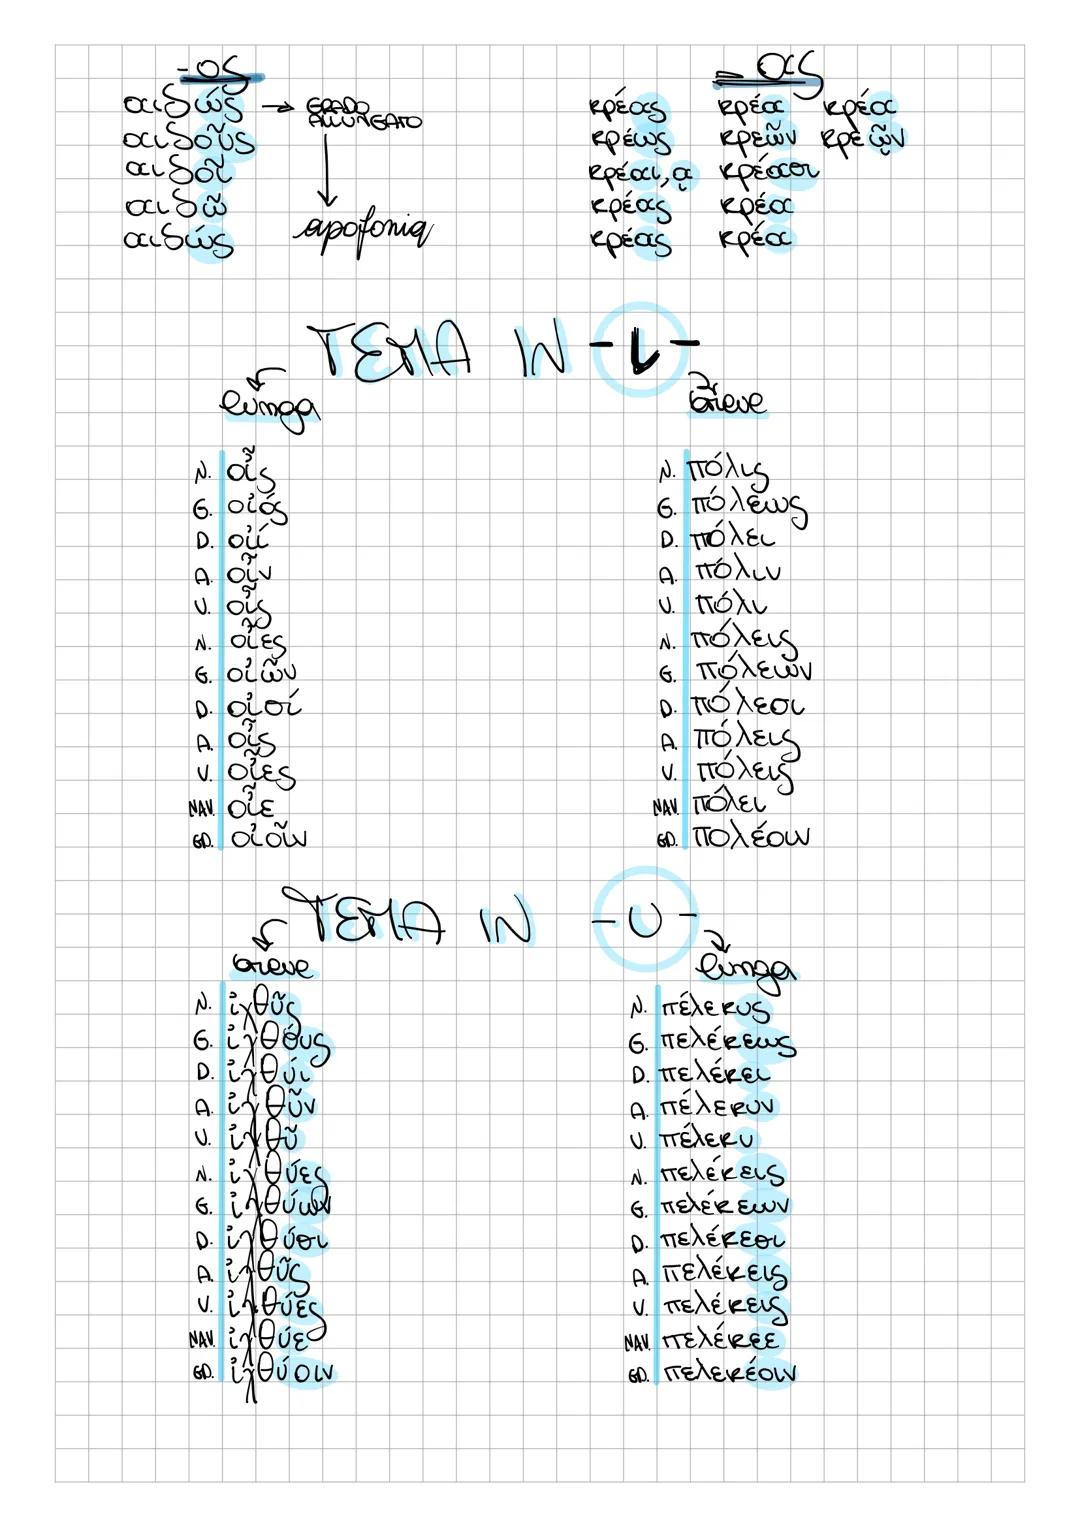 -ος
αιδώς → GRADO ALLUNGATO
αιδοῦς
αιδοῖ
αιδῶ
αιδώς
apofonia
-ας
κρέας κρέα κρέα
κρέως κρεῶν κρεῶν
κρέαι, ᾳ κρέασι
κρέας κρέα
κρέας κρέα
TEMA IN -ι-
lunga
N. οἶς
G. οἰός
D. οἰί
A. οἶν
V. οἶς
N. οἶες
G. οἰῶν
D. οἰσί
A. οἶς
V. οἶες
NAV. οἶε
GD. οἰοῖν
breve
N. πόλις
G. πόλεως
D. πόλει
A. πόλιν
V. πόλι
N. πόλεις
G. πόλεων
D. πόλεσι
A. πόλεις
V. πόλεις
NAV. πόλει
GD. πολέοιν
TEMA IN -υ-
breve
N. ἰχθῦς
G. ἰχθύυς
D. ἰχθύι
A. ἰχθῦν
V. ἰχθῦ
N. ἰχθύες
G. ἰχθύων
D. ἰχθύσι
A. ἰχθῦς
V. ἰχθύες
NAV. ἰχθύε
GD. ἰχθύοιν
lunga
N. πέλεκυς
G. πελέκεως
D. πελέκει
A. πέλεκυν
V. πέλεκυ
N. πελέκεις
G. πελέκεων
D. πελέκεσι
A. πελέκεις
V. πελέκεις
NAV. πελέκεε
GD. πελεκέοιν